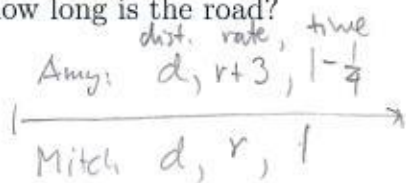 how long is the road?
dist. rate, time
Amy: d, r+3, 1-1/4
Mitch d, r, 1